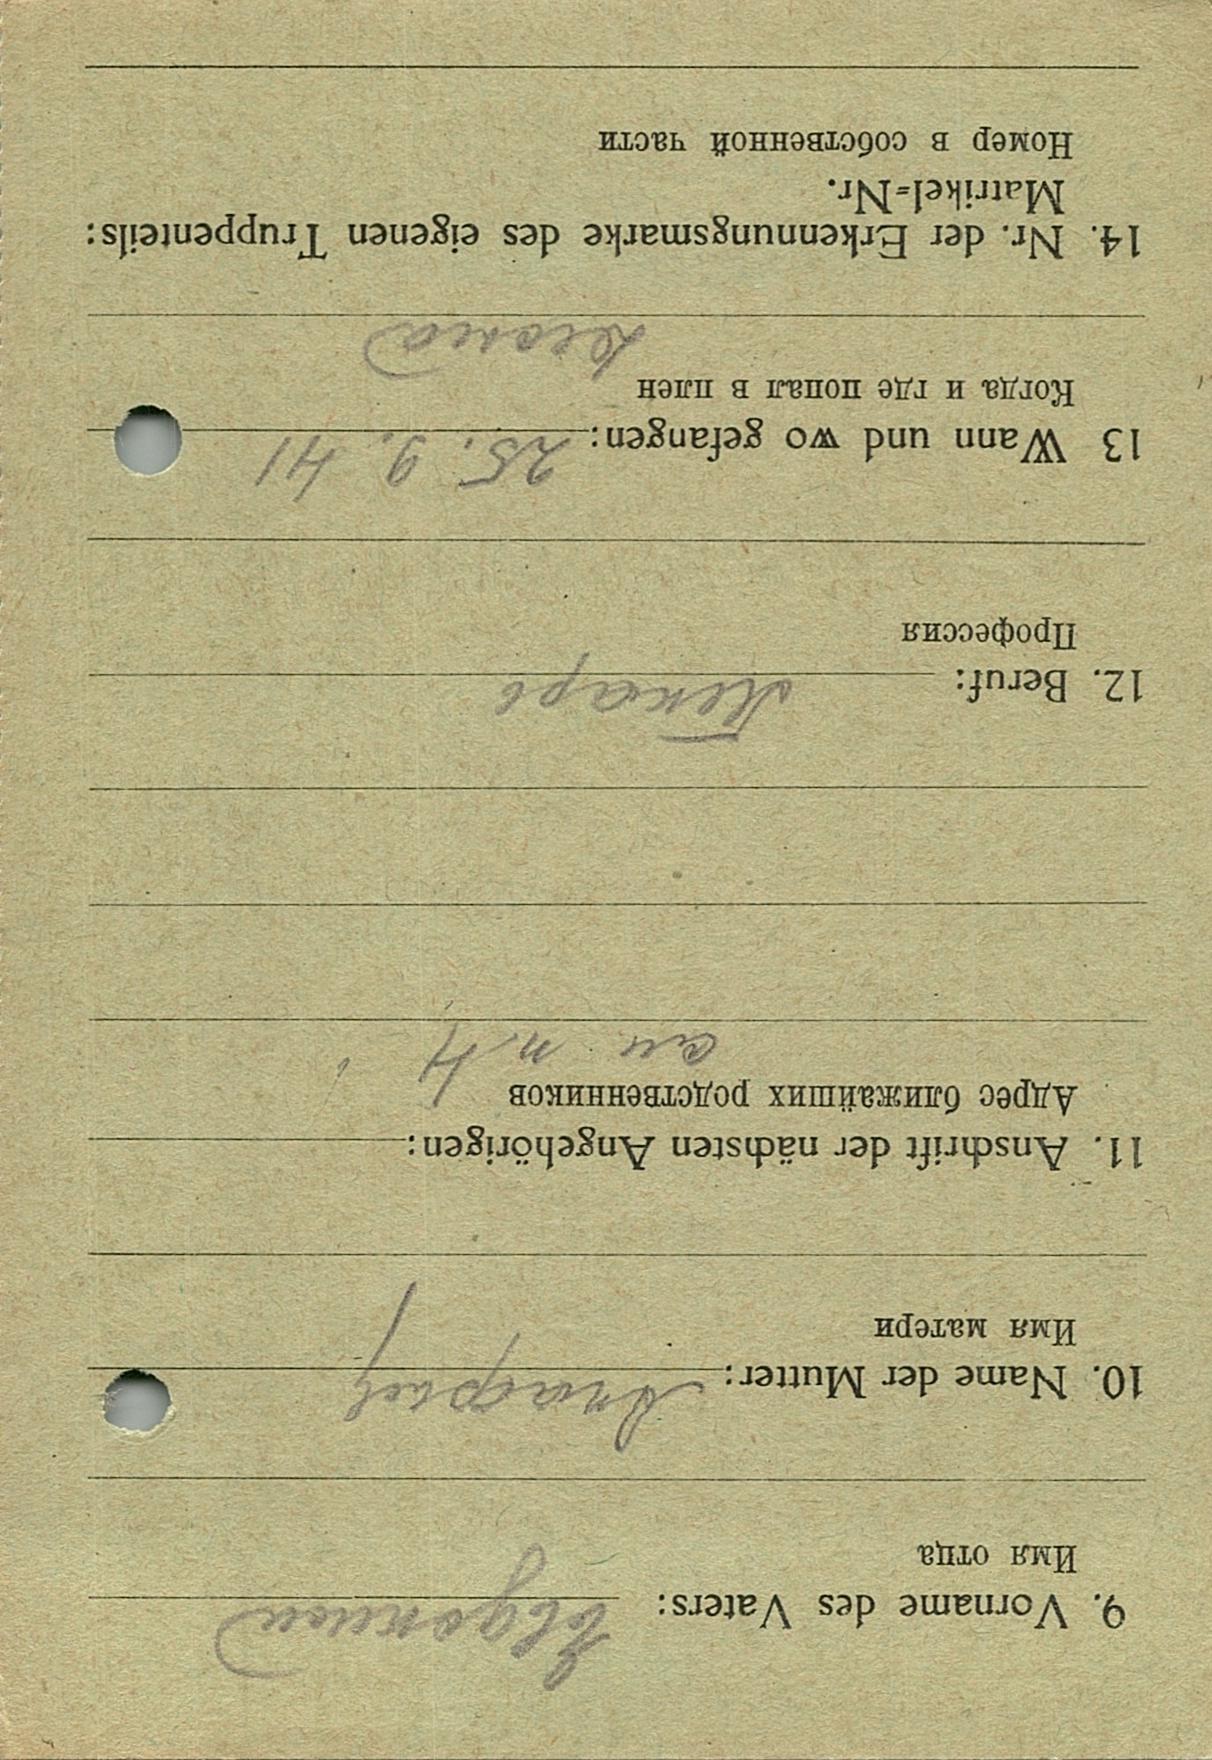 9. Vorname des Vaters: Евдоким
Имя отца
10. Name der Mutter:
Имя матери
11. Anschrift der nächsten Angehörigen:
Адрес ближайших родственников
см п. 4
12. Beruf: Пекарь
Профессия
13 Wann und wo gefangen: 25. 9. 41
Когда и где попал в плен
14. Nr. der Erkennungsmarke des eigenen Truppenteils:
Matrikel-Nr.
Номер в собственной части